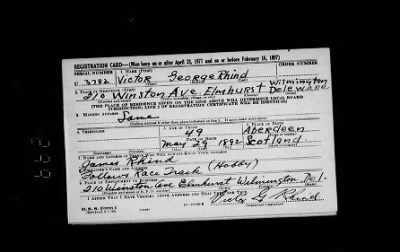 REGISTRATION CARD—(Men born on or after April 28, 1877 and on or before February 16, 1897)
SERIAL NUMBER 1. NAME (Print) ORDER NUMBER
U 3782 Victor George Rhind
2. PLACE OF RESIDENCE (Print)
210 Winston Ave. Elmhurst Wilmington Deleware
[THE PLACE OF RESIDENCE GIVEN ON THE LINE ABOVE WILL DETERMINE LOCAL BOARD
JURISDICTION; LINE 2 OF REGISTRATION CERTIFICATE WILL BE IDENTICAL]
3. MAILING ADDRESS
Same
4. TELEPHONE 5. AGE IN YEARS 6. PLACE OF BIRTH
49 Aberdeen
DATE OF BIRTH
May 29 1892 Scotland
7. NAME AND ADDRESS OF PERSON WHO WILL ALWAYS KNOW YOUR ADDRESS
James Rhind
8. EMPLOYER'S NAME AND ADDRESS
Follows Race Track (Hobby)
9. PLACE OF EMPLOYMENT OR BUSINESS
210 Winston ave Elmhurst Wilmington Del.
I AFFIRM THAT I HAVE VERIFIED ABOVE ANSWERS AND THAT THEY ARE TRUE.
D. S. S. Form 1
Victor G Rhind